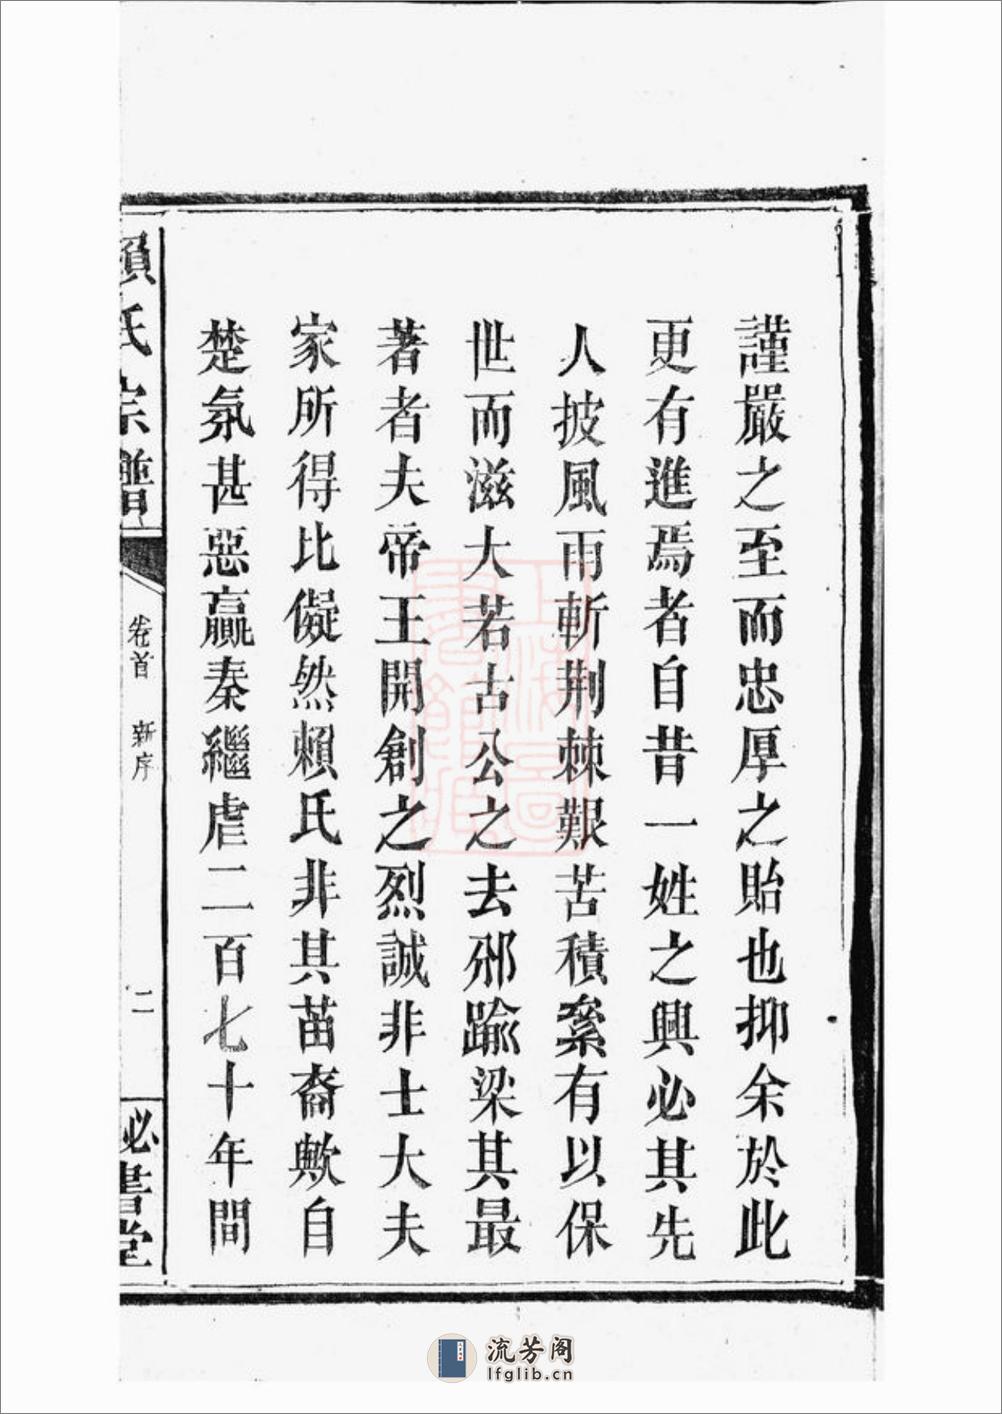 謹嚴之至而忠厚之貽也抑余於此
更有進焉者自昔一姓之興必其先
人披風雨斬荆棘艱苦積絫有以保
世而滋大若古公之去邠踰梁其最
著者夫帝王開創之烈誠非士大夫
家所得比儗然賴氏非其苗裔歟自
楚氛甚惡嬴秦繼虐二百七十年間
賴氏宗譜
卷首 新序
二
必書堂
上海圖書館藏
流芳阁
lfglib.cn